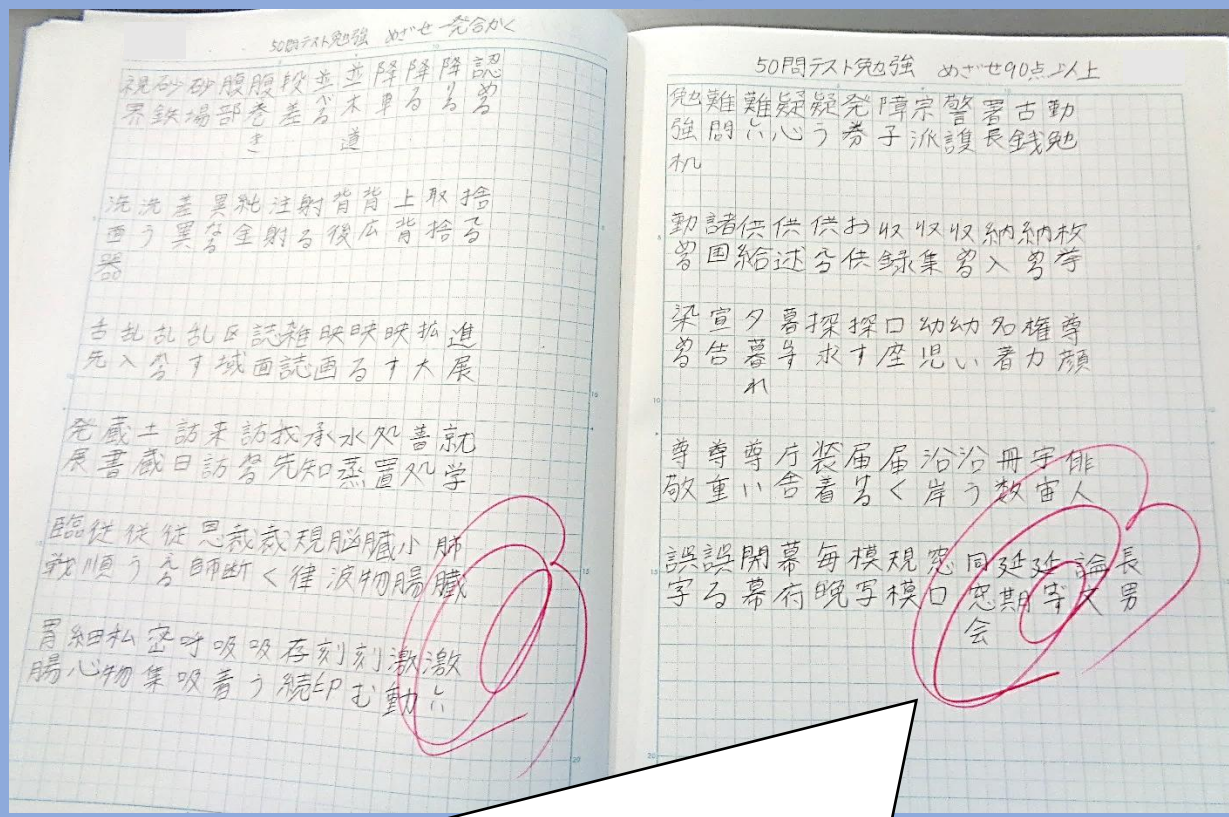 50問テスト勉強 めざせ一発合かく
認める
降りる
降る
降車
並木道
並ぶ
段差
腹巻き
腹部
砂場
砂鉄
視界
捨てる
取捨
上背
背広
背後
射る
注射
純金
異なる
差異
洗う
洗面器
進展
拡大
映す
映る
映画
雑誌
誌面
区域
乱す
乱れる
乱入
舌先
就学
善処
処置
水蒸
承知
我先
訪ねる
来訪
訪日
土蔵
蔵書
発展
肺臓
小腸
臓物
脳波
規律
裁く
裁断
恩師
従える
従う
従順
臨戦
激しい
激動
刻む
刻印
存続
吸う
吸着
呼吸
密集
私物
細心
胃腸
50問テスト勉強 めざせ90点以上
勤勉
古銭
署長
警護
宗派
障子
発券
疑う
疑心
難しい
難問
勉強机
枚挙
納める
納入
収める
収集
収録
お供
供える
供述
供給
諸国
勤める
尊顔
権力
名著
幼い
幼児
口座
探す
探求
暮らす
夕暮れ
宣告
染める
俳人
宇宙
冊数
沿う
沿岸
届く
届ける
装着
庁舎
尊い
尊重
尊敬
長男
論文
延期
同窓会
窓口
規模
模写
毎晩
幕府
開幕
誤る
誤字